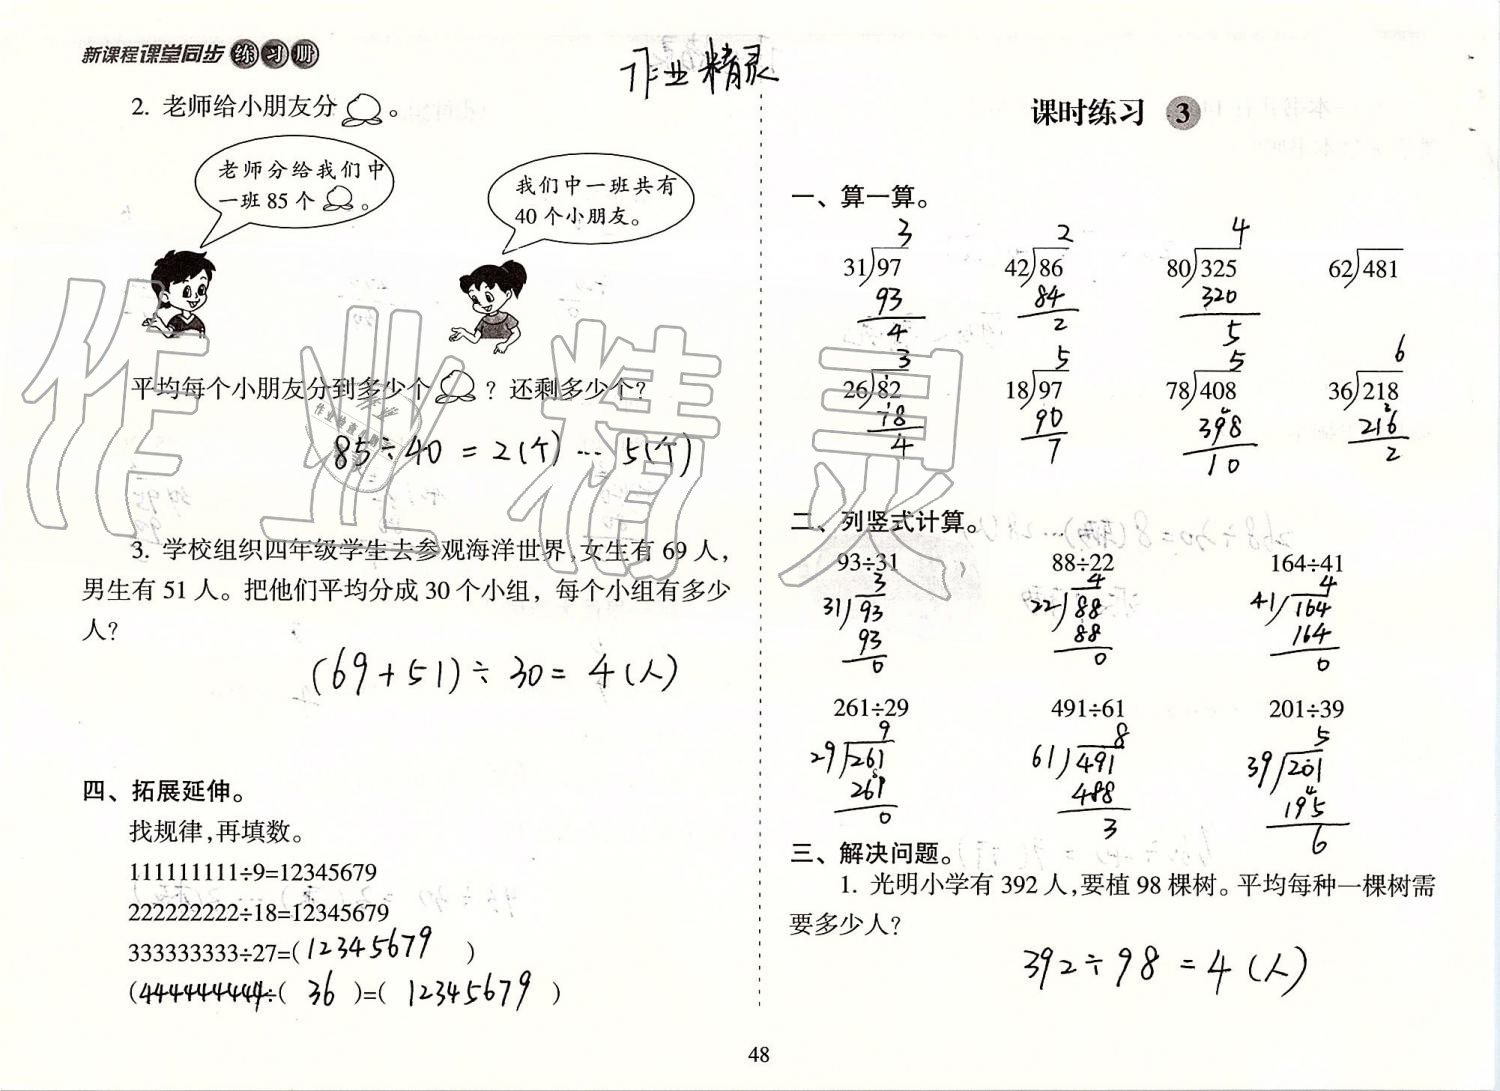 新课程课堂同步练习册
作业精灵
2. 老师给小朋友分。
老师分给我们中
一班85个。
我们中一班共有
40个小朋友。
平均每个小朋友分到多少个？还剩多少个？
85÷40=2(个)…5(个)
3. 学校组织四年级学生去参观海洋世界,女生有69人,
男生有51人。把他们平均分成30个小组，每个小组有多少
人？
(69+51)÷30=4(人)
四、拓展延伸。
找规律,再填数。
111111111÷9=12345679
222222222÷18=12345679
333333333÷27=(12345679)
(444444444÷(36)=(12345679)
课时练习 3
一、算一算。
3 2 4
31)97 42)86 80)325 62)481
93 84 320
4 2 5
3 5 5 6
26)82 18)97 78)408 36)218
78 90 398 216
4 7 10 2
二、列竖式计算。
93÷31 88÷22 164÷41
3 4 4
31)93 22)88 41)164
93 88 164
0 0 0
261÷29 491÷61 201÷39
9 8 5
29)261 61)491 39)201
261 488 195
0 3 6
三、解决问题。
1. 光明小学有392人,要植98棵树。平均每种一棵树需
要多少人？
392÷98=4(人)
48
作业精灵